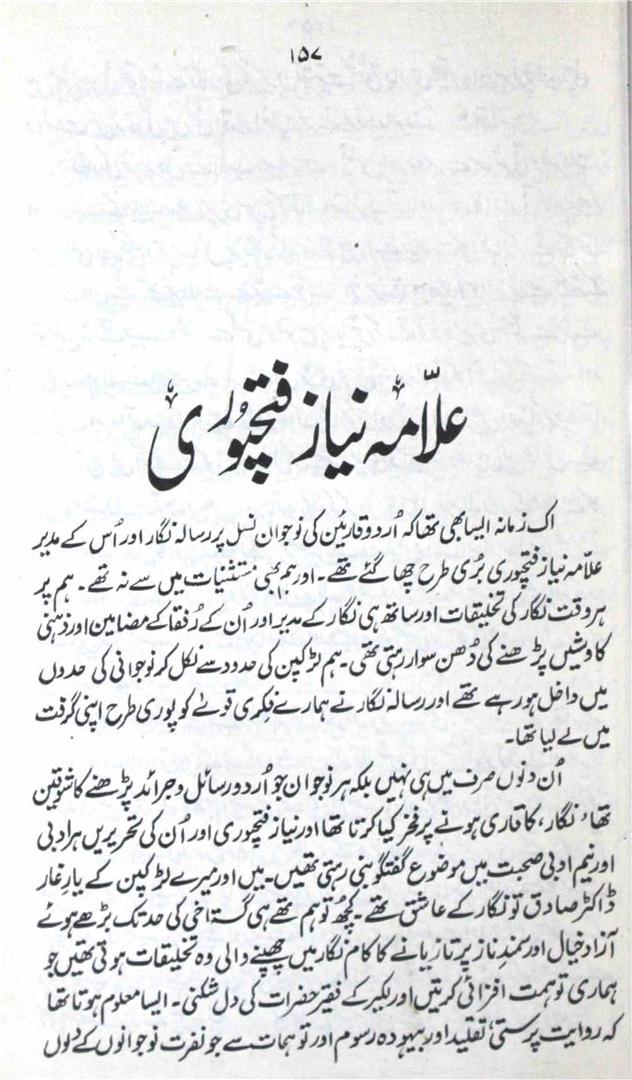 ۱۵۷
علّامہ نیاز فتحپوری
اک زمانہ ایسا بھی تھا کہ اُردو قارئین کی نوجوان نسل پر رسالہ نگار اور اُس کے مدیر
علّامہ نیاز فتحپوری بری طرح چھا گئے تھے۔ اور ہم بھی مستثنیات میں سے نہ تھے۔ ہم پر
ہر وقت نگار کی تخلیقات اور ساتھ ہی نگار کے مدیر اور اُن کے رُفقا کے مضامین اور ذہنی
کاوشیں پڑھنے کی دُھن سوار رہتی تھی۔ ہم لڑکپن کی حدود سے نکل کر نوجوانی کی حدوں
میں داخل ہو رہے تھے اور رسالہ نگار نے ہمارے فکری قویٰ کو پوری طرح اپنی گرفت
میں لے لیا تھا۔
اُن دنوں صرف میں ہی نہیں بلکہ ہر نوجوان جو اُردو رسائل و جرائد پڑھنے کا شوقین
تھا، نگار، کا قاری ہونے پر فخر کیا کرتا تھا اور نیاز فتحپوری اور اُن کی تحریریں ہر ادبی
اور نیم ادبی صحبت میں موضوع گفتگو بنی رہتی تھیں۔ میں اور میرے لڑکپن کے یارِ غار
ڈاکٹر صادق تو نگار کے عاشق تھے۔ کچھ تو ہم تھے ہی گستاخی کی حد تک بڑھے ہوئے
آزاد خیال اور سمندِ ناز پر تازیانے کا کام نگار میں چھپنے والی وہ تخلیقات ہوتی تھیں جو
ہماری تو ہمت افزائی کرتیں اور لکیر کے فقیر حضرات کی دل شکنی۔ ایسا معلوم ہوتا تھا
کہ روایت پرستی، تقلید اور بیہودہ رسوم اور توہمات سے جو نفرت نوجوانوں کے دلوں